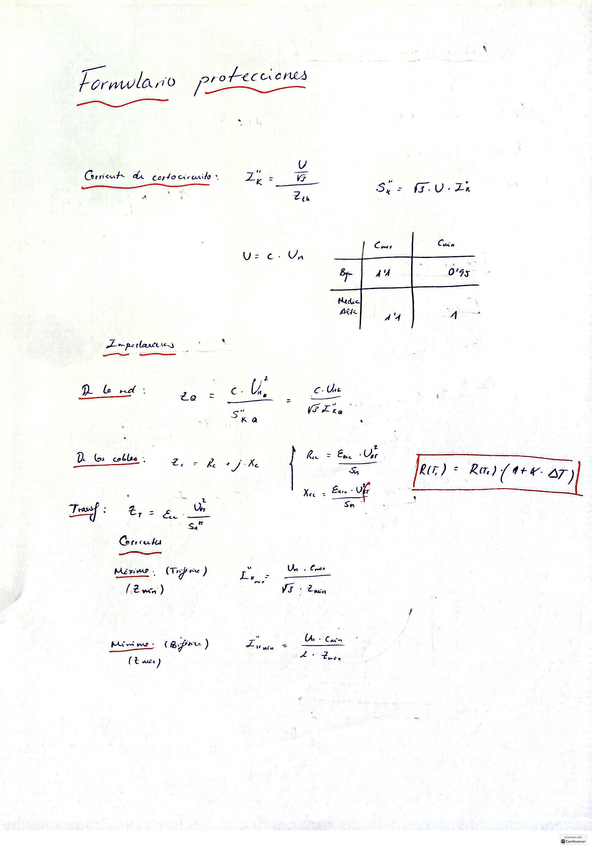 Formulario protecciones
Corriente de cortocircuito: I"K = (U/√3) / Zth    S"K = √3 · U · I"K
U = c · Un
Cmax Cmin
BT 1'1 0'95
Media 1'1 1
Impedancias
De la red: ZQ = c · UnQ² / S"KQ = c · UnQ / √3 I"KQ
De los cables: Zc = Rc + j · Xc
Rcc = εRcc · UnT² / Sn
Xcc = εXcc · UnT² / Sn
R(T1) = R(T0) · (1 + α · ΔT)
Transf: ZT = εcc · Un² / Sn
Corrientes
Máxima: (Trifásica) I"Kmax = Un · Cmax / √3 · Zmin
(Zmin)
Mínima: (Bifásica) I"Kmin = Un · Cmin / 2 · Zmax
(Zmax)
Scanned with
CamScanner